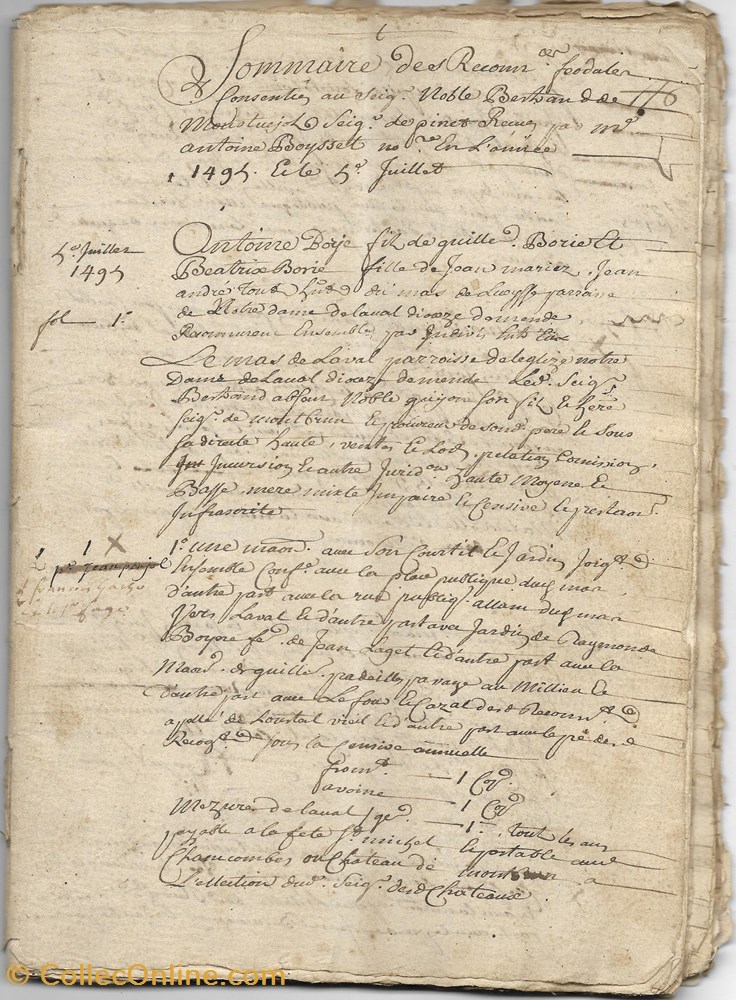 Sommaire des Reconn.ces feodales
Consenties au Seig.r Noble Bertrand de
Moustuejols Seig.r de pinet Reçues par m.e
antoine Boysset no.re En L'année
1495. Et le 5.e Juillet
5.e Juillet
1495
fol 1.r
Antoine Borje fils de guille.d Borie Et
Beatrix Borie fille de Jean mariez, Jean
andré Tous du mas de parroisse
de Notre dame de laval dioceze de mende
Reconnurent Ensemble par Indivis
Le mas de Laval parroisse de leglize notre
Dame de Laval dioceze de mende Led. Seig.r
Bertrand absent, Noble guijon son fils et here
Seig.r de montbrun et procureur de sond. pere et Sous
la directe haute, ventes et Lods, pelation Comission,
Incursion et autre Juridon haute Moyene et
Basse, mere mixte Impaire et Censive et prestaon
Infrascrite
1 X
1.o une maon. avec Son Courtil et Jardin Joig.t
Ensemble Conf.e avec la place publique dud mas
D'autre part avec la rue publiq. allant dud mas
Vers Laval et d'autre part avec Jardin de Raymonde
Boyre fe. de Jean Laget et d'autre part avec la
Maon. de guille. passage au Millieu et
D'autre part avec Le four et Cazal desd Reconn.t
apellé de Loustal vieil et d'autre part avec le pré des d
Recog.t sous la Censive annuelle
from.t — 1 Cop.
avoine — 1 Cop.
Mezure de laval, — 1. Tout les ans
payable a la fete S.t michel et portable aud
Chamcombes ou Chateau de montbrun a
L'ellection dud. Seig.r desd Chateaux
© CollecOnline.com